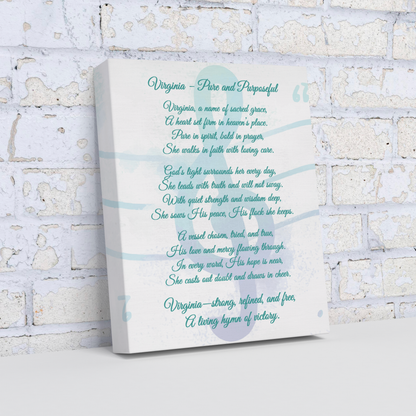 Virginia – Pure and Purposeful
Virginia, a name of sacred grace,
A heart set firm in heaven's place.
Pure in spirit, bold in prayer,
She walks in faith with loving care.
God's light surrounds her every day,
She leads with truth and will not sway.
With quiet strength and wisdom deep,
She sows His peace, His flock she keeps.
A vessel chosen, tried, and true,
His love and mercy flowing through.
In every word, His hope is near,
She casts out doubt and draws in cheer.
Virginia—strong, refined, and free,
A living hymn of victory.